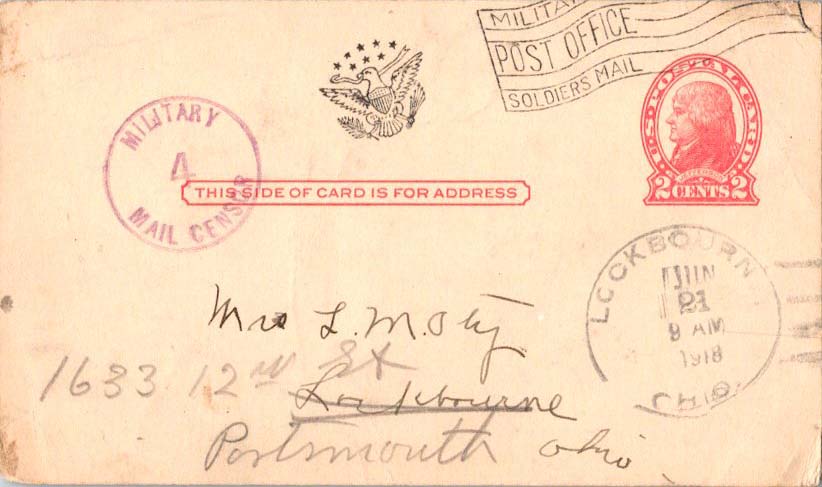 MILITARY
POST OFFICE
SOLDIERS MAIL
U·S·POSTAL·CARD
JEFFERSON
2 CENTS 2
MILITARY
4
MAIL CENSOR
THIS SIDE OF CARD IS FOR ADDRESS
LOCKBOURN
JUN
21
9 AM
1918
OHIO
Mrs L. M. Oty
1633 12th St
Lockbourne
Portsmouth Ohio